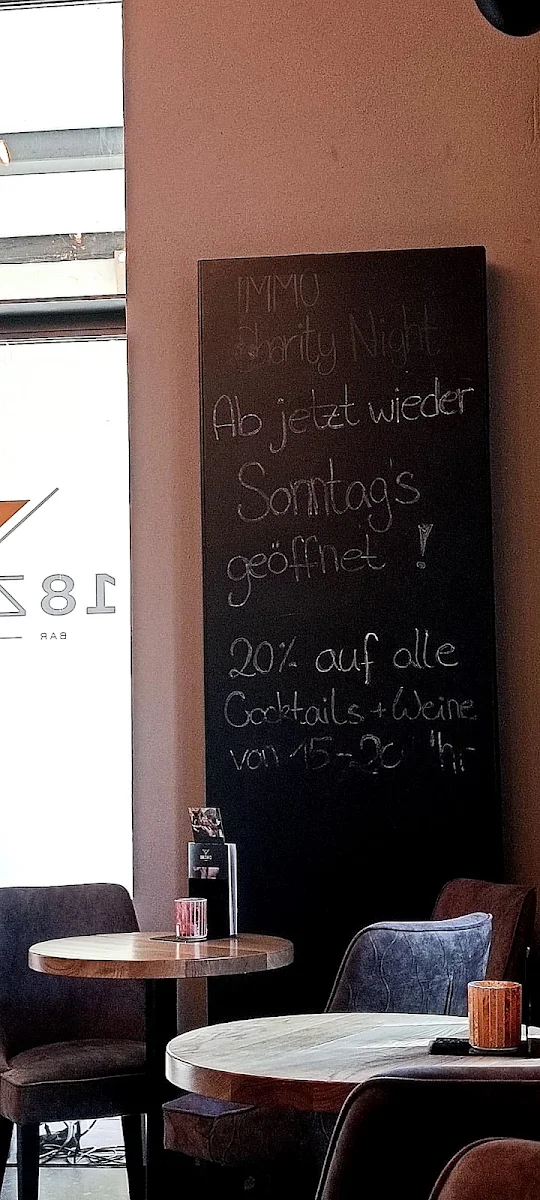 IMMO
Charity Night
Ab jetzt wieder
Sonntag's
geöffnet !
20% auf alle
Cocktails + Weine
von 15-20 Uhr
BAR